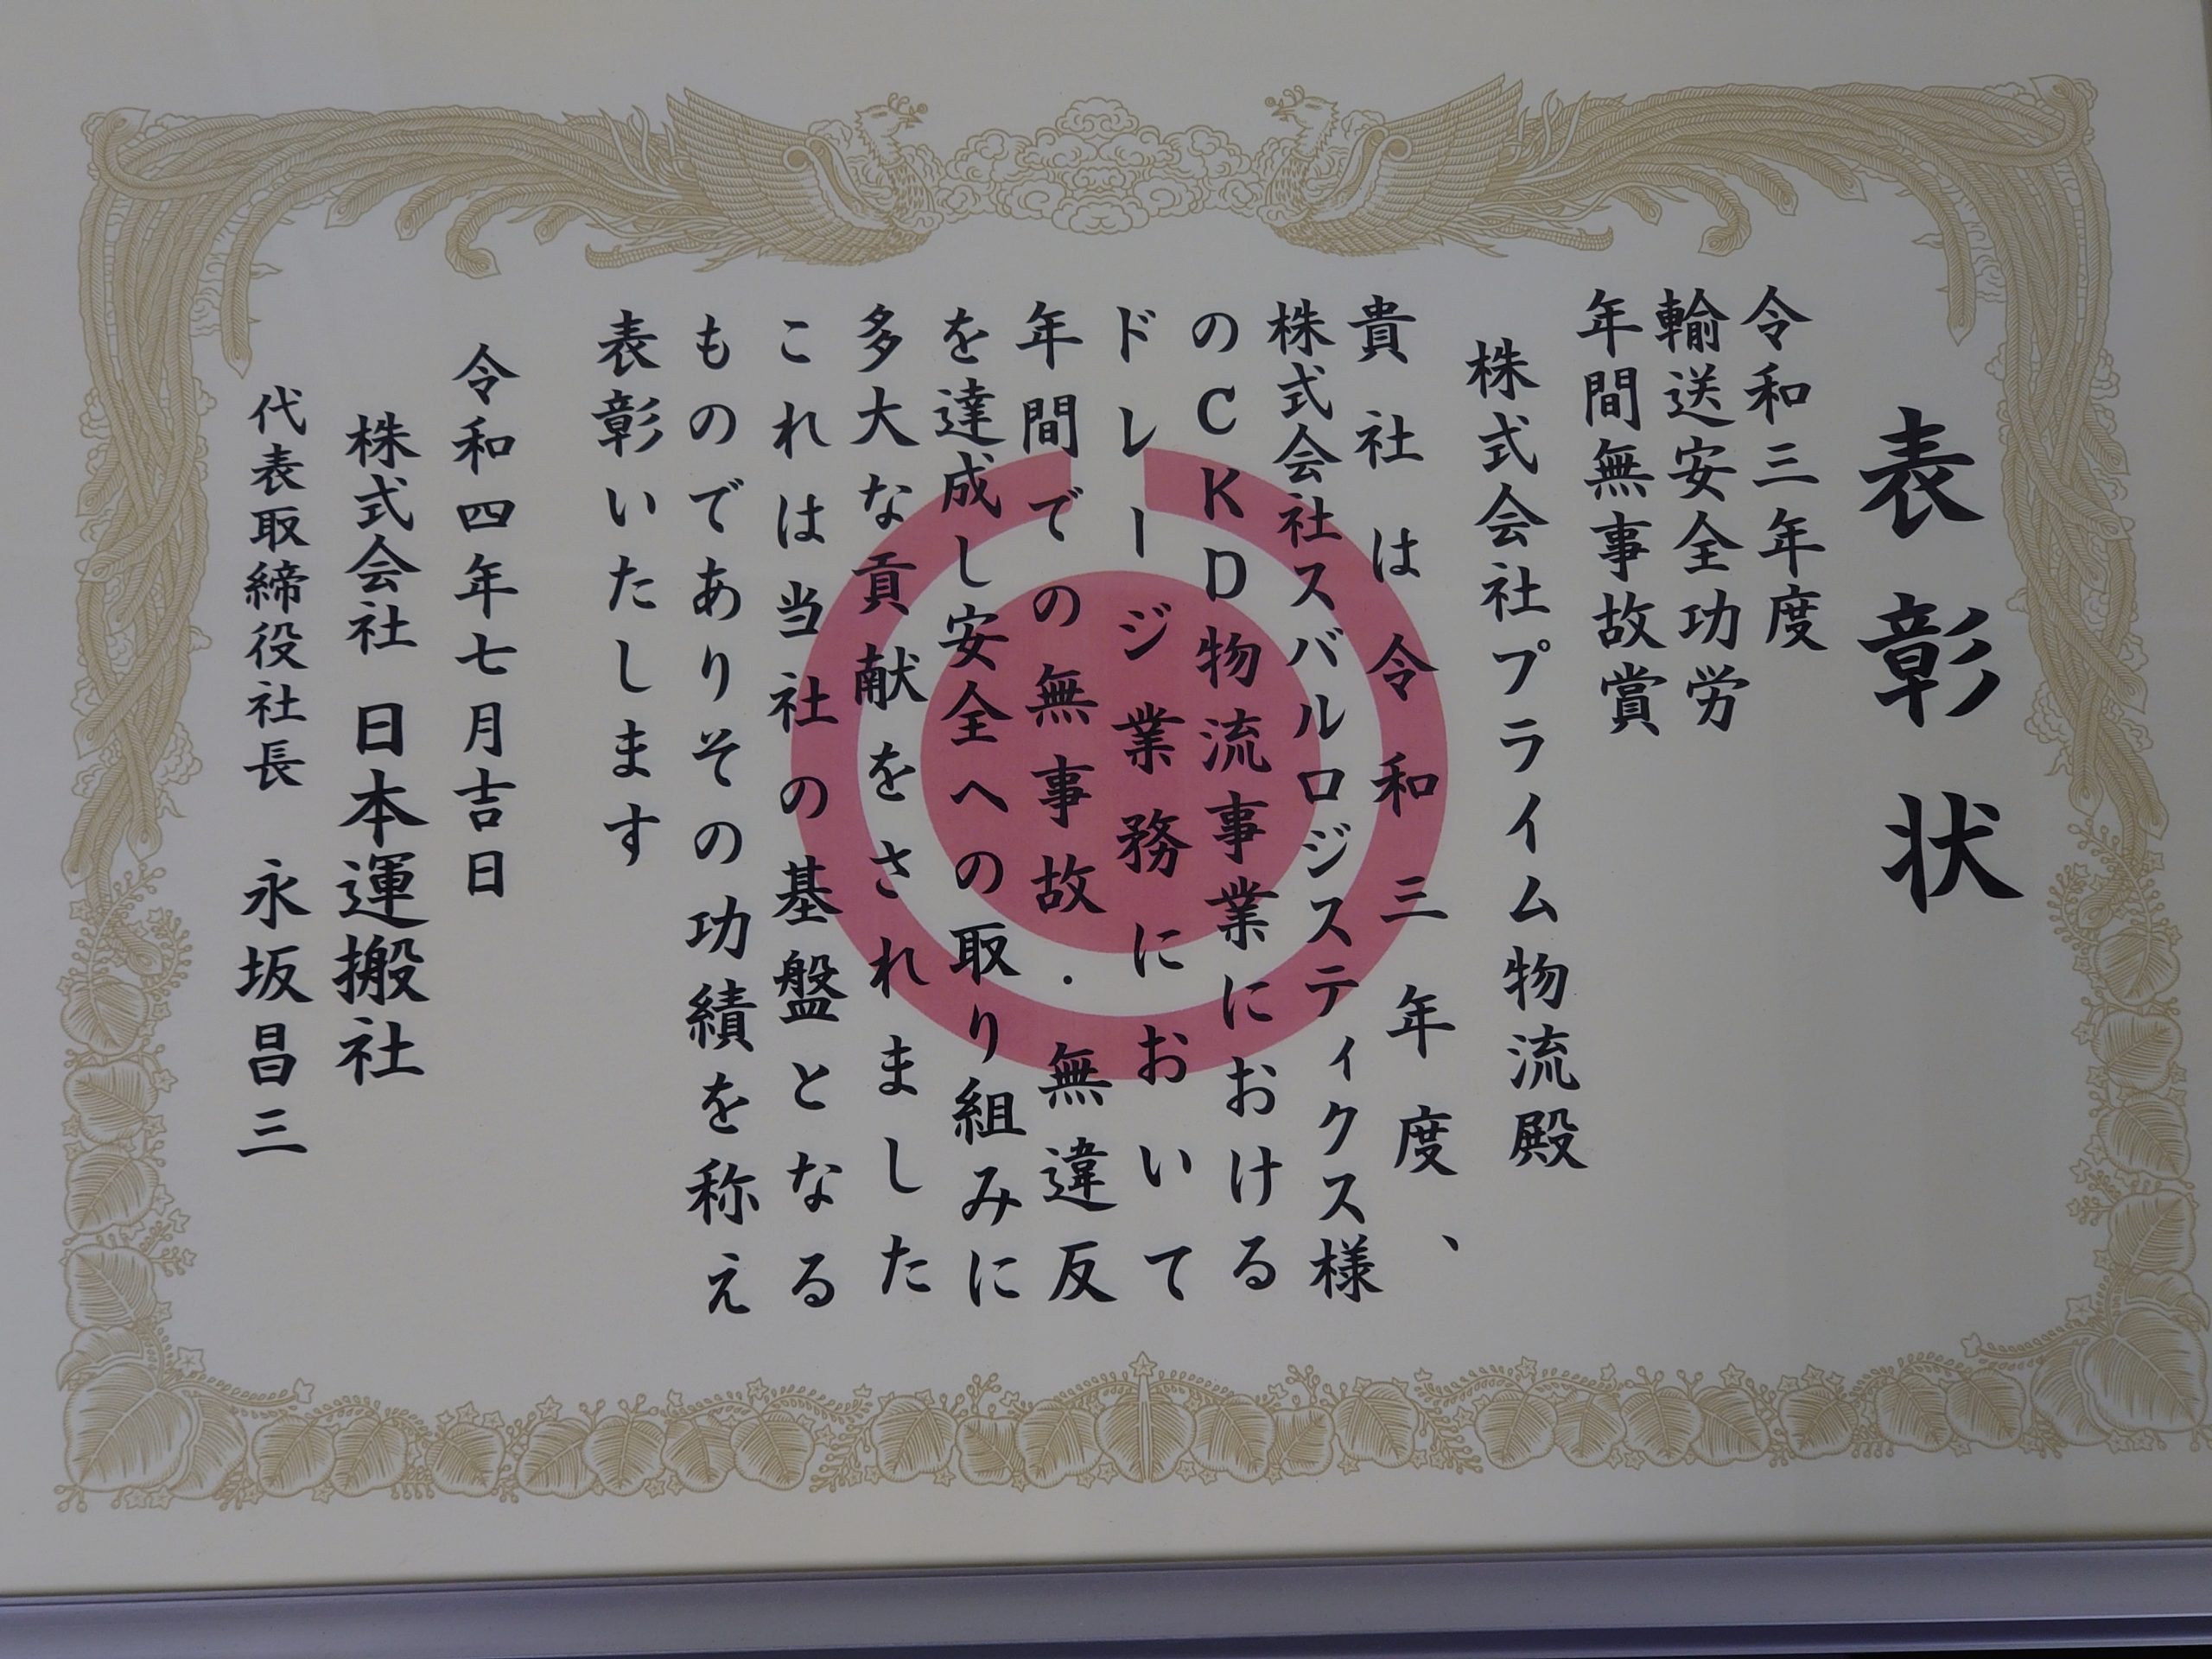 表彰状
令和三年度
輸送安全功労
年間無事故賞
株式会社プライム物流殿
貴社は令和三年度、
株式会社スバルロジスティクス様
のCKD物流事業における
ドレージ業務において
年間での無事故・無違反
を達成し安全への取り組みに
多大な貢献をされました
これは当社の基盤となる
ものでありその功績を称え
表彰いたします
令和四年七月吉日
株式会社 日本運搬社
代表取締役社長 永坂昌三